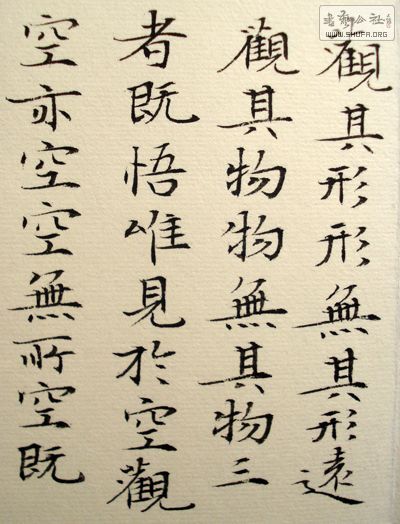 觀其形形無其形遠
觀其物物無其物三
者既悟唯見於空觀
空亦空空無所空既
書藝公社
WWW.SHUFA.ORG